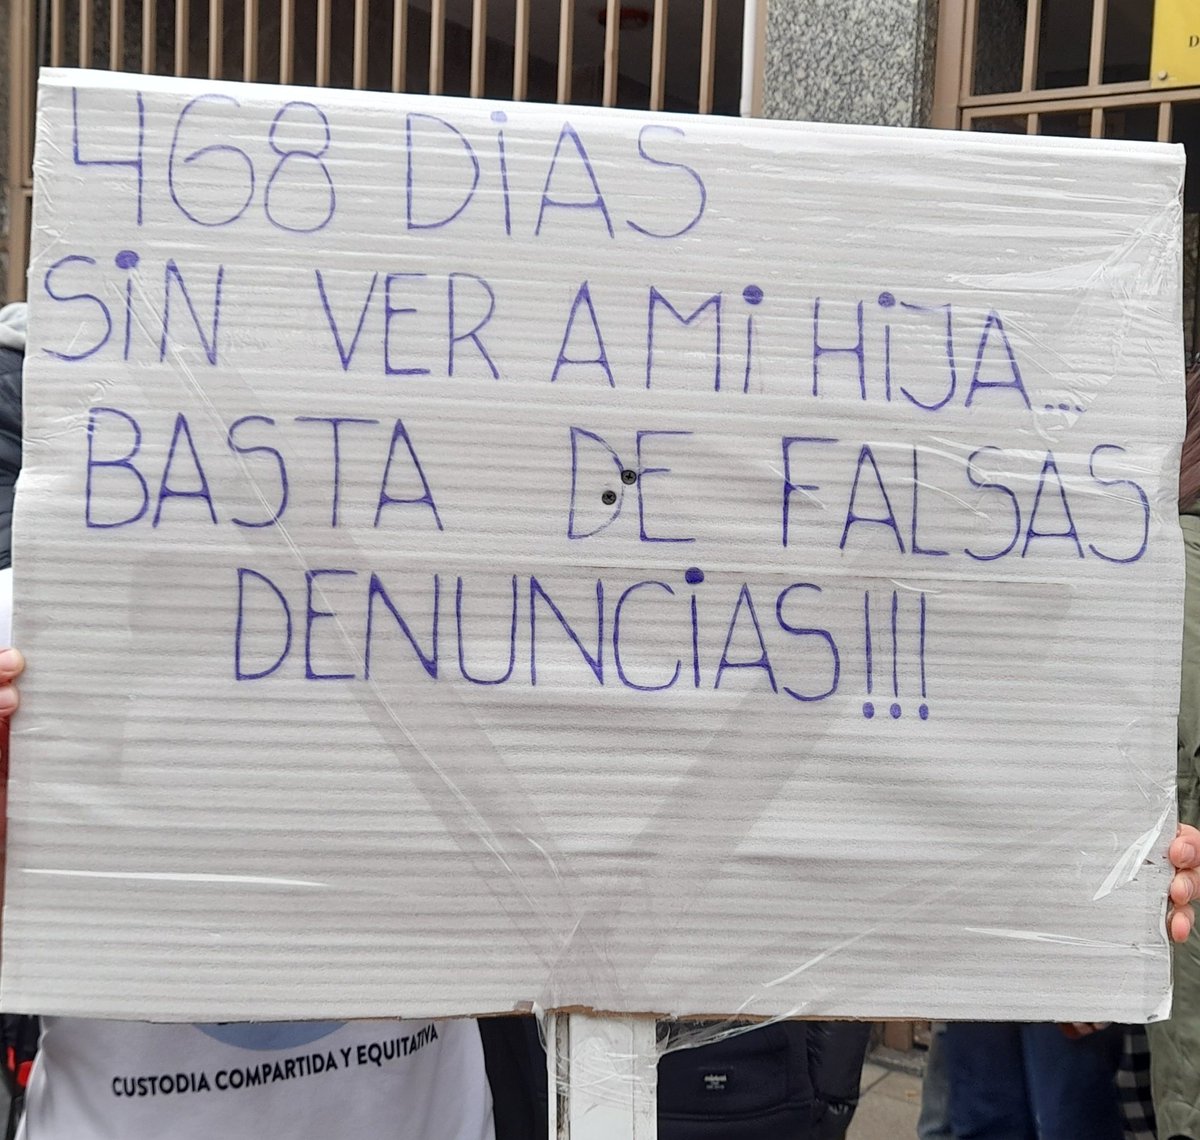 468 DiAS
SiN VER A Mi HiJA...
BASTA DE FALSAS
DENUNCiAS!!!
CUSTODIA COMPARTIDA Y EQUITATIVA